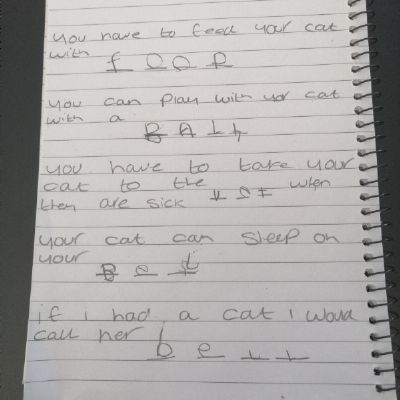 You have to feed your cat
with f O O P
You can play with yor cat
with a B A L L
you have to take your
cat to the V S T when
then are sick
your cat can sleep on
your B e d
if i had a cat i would
call her b e L L